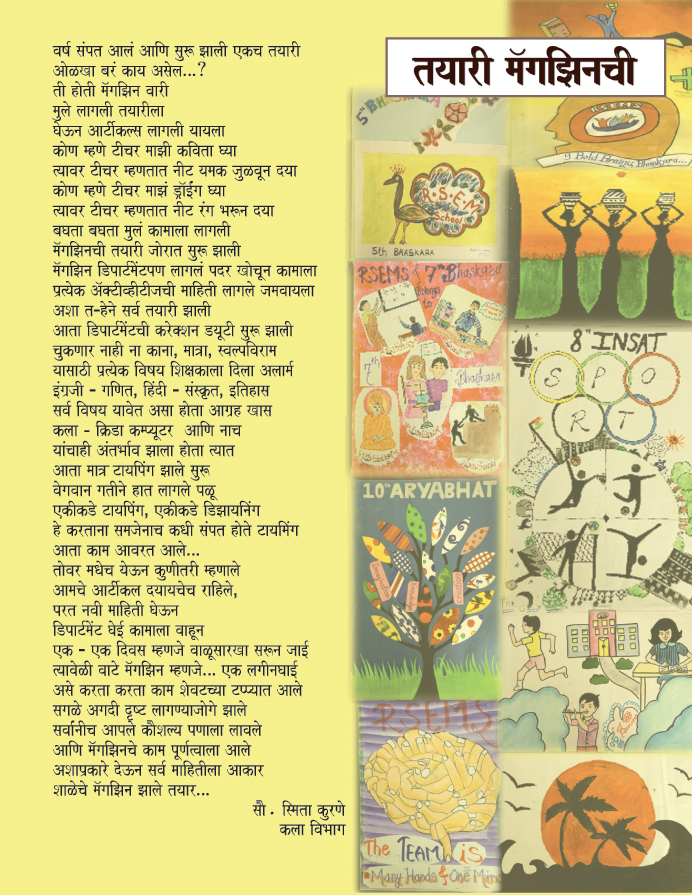 तयारी मॅगझिनची
वर्ष संपत आलं आणि सुरू झाली एकच तयारी
ओळखा बरं काय असेल...?
ती होती मॅगझिन वारी
मुले लागली तयारीला
घेऊन आर्टीकल्स लागली यायला
कोण म्हणे टीचर माझी कविता घ्या
त्यावर टीचर म्हणतात नीट यमक जुळवून दया
कोण म्हणे टीचर माझं ड्रॉईंग घ्या
त्यावर टीचर म्हणतात नीट रंग भरून दया
बघता बघता मुलं कामाला लागली
मॅगझिनची तयारी जोरात सुरू झाली
मॅगझिन डिपार्टमेंटपण लागलं पदर खोचून कामाला
प्रत्येक ॲक्टीव्हीटीजची माहिती लागले जमवायला
अशा त-हेने सर्व तयारी झाली
आता डिपार्टमेंटची करेक्शन डयूटी सुरू झाली
चुकणार नाही ना काना, मात्रा, स्वल्पविराम
यासाठी प्रत्येक विषय शिक्षकाला दिला अलार्म
इंग्रजी - गणित, हिंदी - संस्कृत, इतिहास
सर्व विषय यावेत असा होता आग्रह खास
कला - क्रिडा कम्प्यूटर आणि नाच
यांचाही अंतर्भाव झाला होता त्यात
आता मात्र टायपिंग झाले सुरू
वेगवान गतीने हात लागले पळू
एकीकडे टायपिंग, एकीकडे डिझायनिंग
हे करताना समजेनाच कधी संपत होते टायमिंग
आता काम आवरत आले...
तोवर मधेच येऊन कुणीतरी म्हणाले
आमचे आर्टीकल दयायचेच राहिले,
परत नवी माहिती घेऊन
डिपार्टमेंट घेई कामाला वाहून
एक - एक दिवस म्हणजे वाळूसारखा सरून जाई
त्यावेळी वाटे मॅगझिन म्हणजे... एक लगीनघाई
असे करता करता काम शेवटच्या टप्प्यात आले
सगळे अगदी दृष्ट लागण्याजोगे झाले
सर्वानीच आपले कौशल्य पणाला लावले
आणि मॅगझिनचे काम पूर्णत्वाला आले
अशाप्रकारे देऊन सर्व माहितीला आकार
शाळेचे मॅगझिन झाले तयार...
सौ. स्मिता कुरणे
कला विभाग
5th BHASKARA
RSEMS
9 Bold Brains, Bhaskara...
R.S.E.M
School
5th BHASKARA
RSEMS 7th Bhaskara
7th
Bhaskara
8th INSAT
SPO
RT
10th ARYABHAT
RSEMS
The TEAM is
Many Hands & One Mind